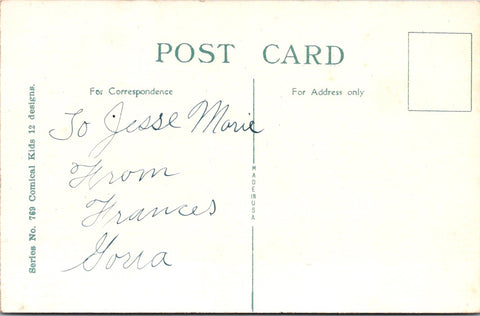 POST CARD
For Correspondence
For Address only
To Jesse Marie
From
Frances
Goria
MADE IN USA
Series No. 769 Comical Kids 12 designs.